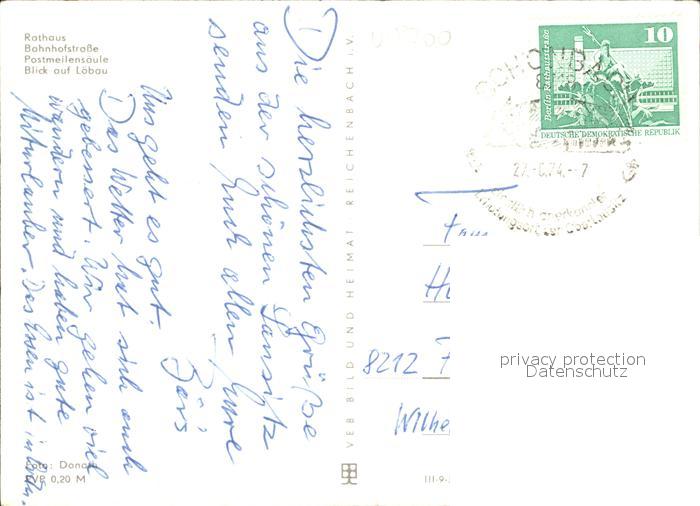 Rathaus
Bahnhofstraße
Postmeilensäule
Blick auf Löbau
Die herzlichsten Grüße
aus der schönen Lausitz
senden Euch allen Eure
Uns geht es gut.
Das Wetter hat sich auch
gebessert. Wir gehen viel
wandern und haben gute
Das Essen ist in Ordn.
Foto: Donath
EVP 0,20 M
VEB BILD UND HEIMAT REICHENBACH i.V.
III-9-
10
Berlin-Rathausstraße
DEUTSCHE DEMOKRATISCHE REPUBLIK
27.-6.74.-7
8212 F
Wilhe
privacy protection
Datenschutz